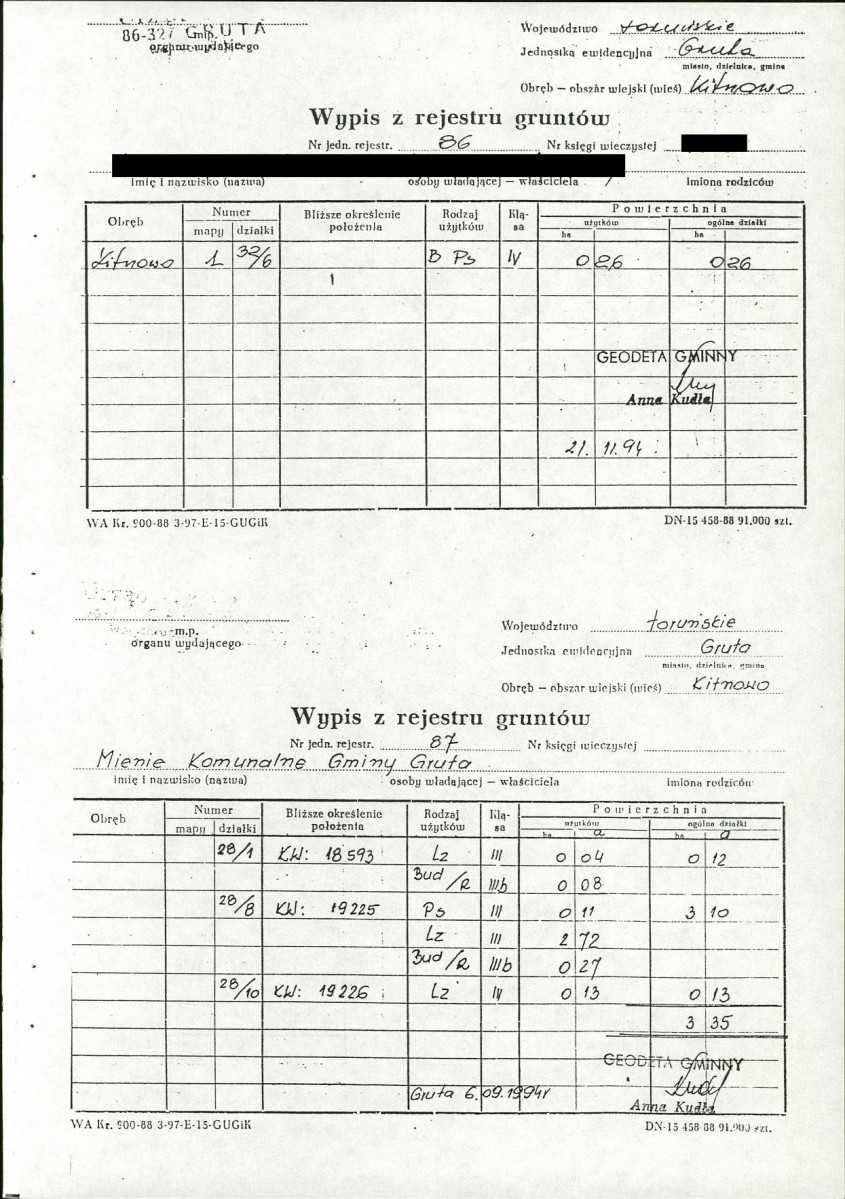 86-327 Gmp. GRUTA
organu wydającego
Województwo toruńskie
Jednostka ewidencyjna Gruta
miasto, dzielnica, gmina
Obręb – obszar wiejski (wieś) Kitnowo
Wypis z rejestru gruntów
Nr jedn. rejestr. 86 Nr księgi wieczystej
imię i nazwisko (nazwa) osoby władającej – właściciela imiona rodziców
Obręb Numer Bliższe określenie położenia Rodzaj użytków Klasa Powierzchnia
mapy działki użytków ogólna działki
ha ha
Kitnowo 1 32/6 B Ps IV 0 26 0 26
GEODETA GMINNY
Anna Kudła
21. 11.94.
WA Kr. 900-88 3-97-E-15-GUGiK DN-15 458-88 91.000 szt.
m.p.
organu wydającego
Województwo toruńskie
Jednostka ewidencyjna Gruta
miasto, dzielnica, gmina
Obręb – obszar wiejski (wieś) Kitnowo
Wypis z rejestru gruntów
Nr jedn. rejestr. 87 Nr księgi wieczystej
Mienie Komunalne Gminy Gruta
imię i nazwisko (nazwa) osoby władającej – właściciela imiona rodziców
Obręb Numer Bliższe określenie położenia Rodzaj użytków Klasa Powierzchnia
mapy działki użytków ogólna działki
ha a ha a
28/1 KW: 18593 Lz III 0 04 0 12
Bud/R IIIb 0 08
28/8 KW: 19225 Ps III 0 11 3 10
Lz III 2 72
Bud/R IIIb 0 27
28/10 KW: 19226 Lz IV 0 13 0 13
3 35
GEODETA GMINNY
Gruta 6.09.1994r
Anna Kudła
WA Kr. 900-88 3-97-E-15-GUGiK DN-15 458-88 91.000 szt.